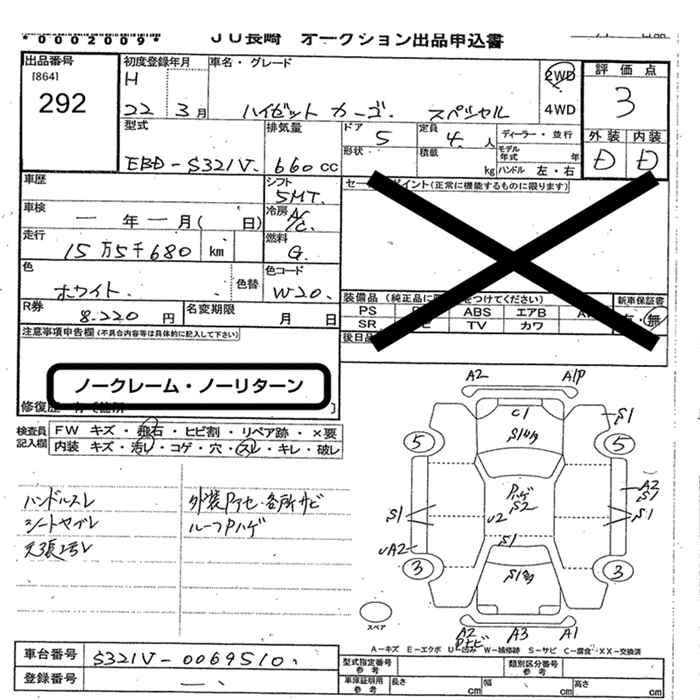 *0002009*
JU長崎 オークション出品申込書
出品番号
[864]
292
初度登録年月
H
22 年 3月
車名・グレード
ハイゼット カーゴ スペシャル
2WD
4WD
評価点
3
外装 内装
D D
型式
EBD-S321V
排気量
660cc
ドア 5
形状
定員 4 人
積載 kg
ディーラー・並行
モデル年式 年
ハンドル 左・右
車歴
シフト
5MT
車検
一 年 一 月( 日)
冷房
A/C
走行
15万5千680 km
燃料
G
色
ホワイト
色替
色コード
W20
R券
8.220 円
名変期限
月 日
注意事項申告欄(不具合内容等は具体的に記入して下さい)
ノークレーム・ノーリターン
セールスポイント(正常に機能するものに限ります)
装備品
PS ABS エアB
SR TV カワ
新車保証書
有・無
検査員記入欄
FW キズ・飛石・ヒビ割・リペア跡・×要
内装 キズ・汚レ・コゲ・穴・スレ・キレ・破レ
ハンドルスレ
シートヤブレ
外装Pアセ・各所サビ
ルーフPハゲ
A2 A1P
C1
S1
5 5
Pハゲ
S2
S1 U2 S1
A2
S1
UA2
S1
3 3
スペア
A2 A3 A1
A-キズ E-エクボ U-凹み W-補修跡 S-サビ C-腐食 XX-交換済
車台番号
S321V-0069510
登録番号
一
型式指定番号
参考
類別区分番号
参考
車庫証明用
参考
長さ cm 幅 cm 高さ cm